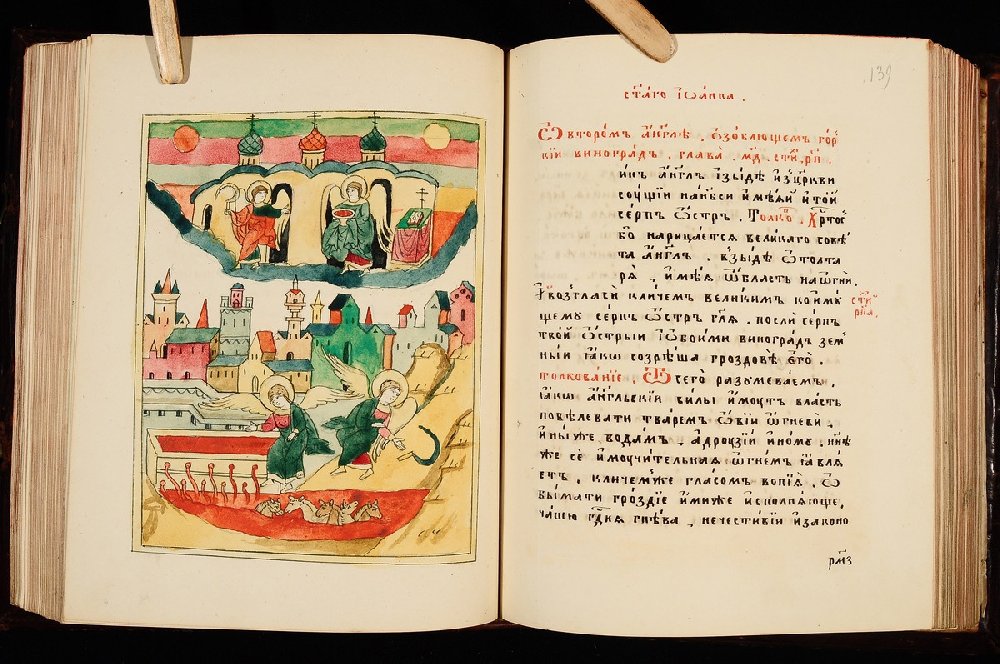 139
ст҃аго їѡанна .
Ѡ второмъ а҆нг҃лѣ , ѡ҆зоблющемъ гор
кїи виноградъ , глава , м҃д , ст҃и , рп҃
и҆нъ а҆нг҃лъ и҆зыдѣ и҆зцр҃кви
сꙋщїи нанб҃си и҆мѣѧй и҆ той
се́рпъ ѻ҆стръ . Толко , Хр҃тос
бо нарицаетсѧ великаго совѣ
та а҆нг҃лъ . и҆зыдѣ ѿ ѻлта
рѧ , и҆мѣѧ ѡ҆бласть наѻ҆гни
И҆возгласи кличемъ великимъ ко и҆мꙋ
щемꙋ серпъ ѻ҆стръ гл҃ѧ , посли се́рпъ
ст҃и
рп҃а .
твой ѻ҆стрыи и҆ѡ҆боими виноградъ зем
ныи ꙗ҆ко созрѣша гроздовѣ є҆гѡ .
толкованїе , Ѿ сего разумеваемъ ,
ꙗ҆ко а҆нг҃льскїи силы и҆мꙋтъ власть
повѣлевати тваремъ ѻ҆вїи ѻ҆гневи ,
и҆ныѧ҆же водамъ , а҆дрꙋзїи и҆номꙋ , ни҃ѣ
же се и҆мꙋчителнаѧ ѻ҆гнемъ ꙗ҆влѧ
етъ , кличемꙋже гласомъ вопїѧ , ѡ҆
б̾имати гро́здїе и҆миже и҆сполнѧюще ,
чашю гд҃нѧ гнѣва , нечестивїи и҆законо
рм҃з